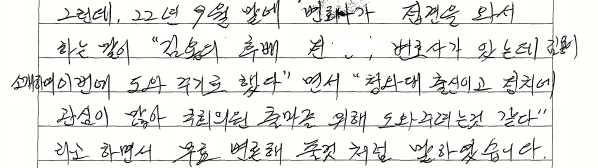 그런데, 22년 9월 말에 변호사가 접견을 와서
하는 말이 "김용의 후배 전 변호사가 있는데 김용이
소개하여 이번에 도와 주기로 했다" 면서 "청와대 출신이고 정치에
관심이 많아 국회의원 출마를 위해 도와주려는것 같다"
라고 하면서 무료 변론해 줄것 처럼 말하였습니다